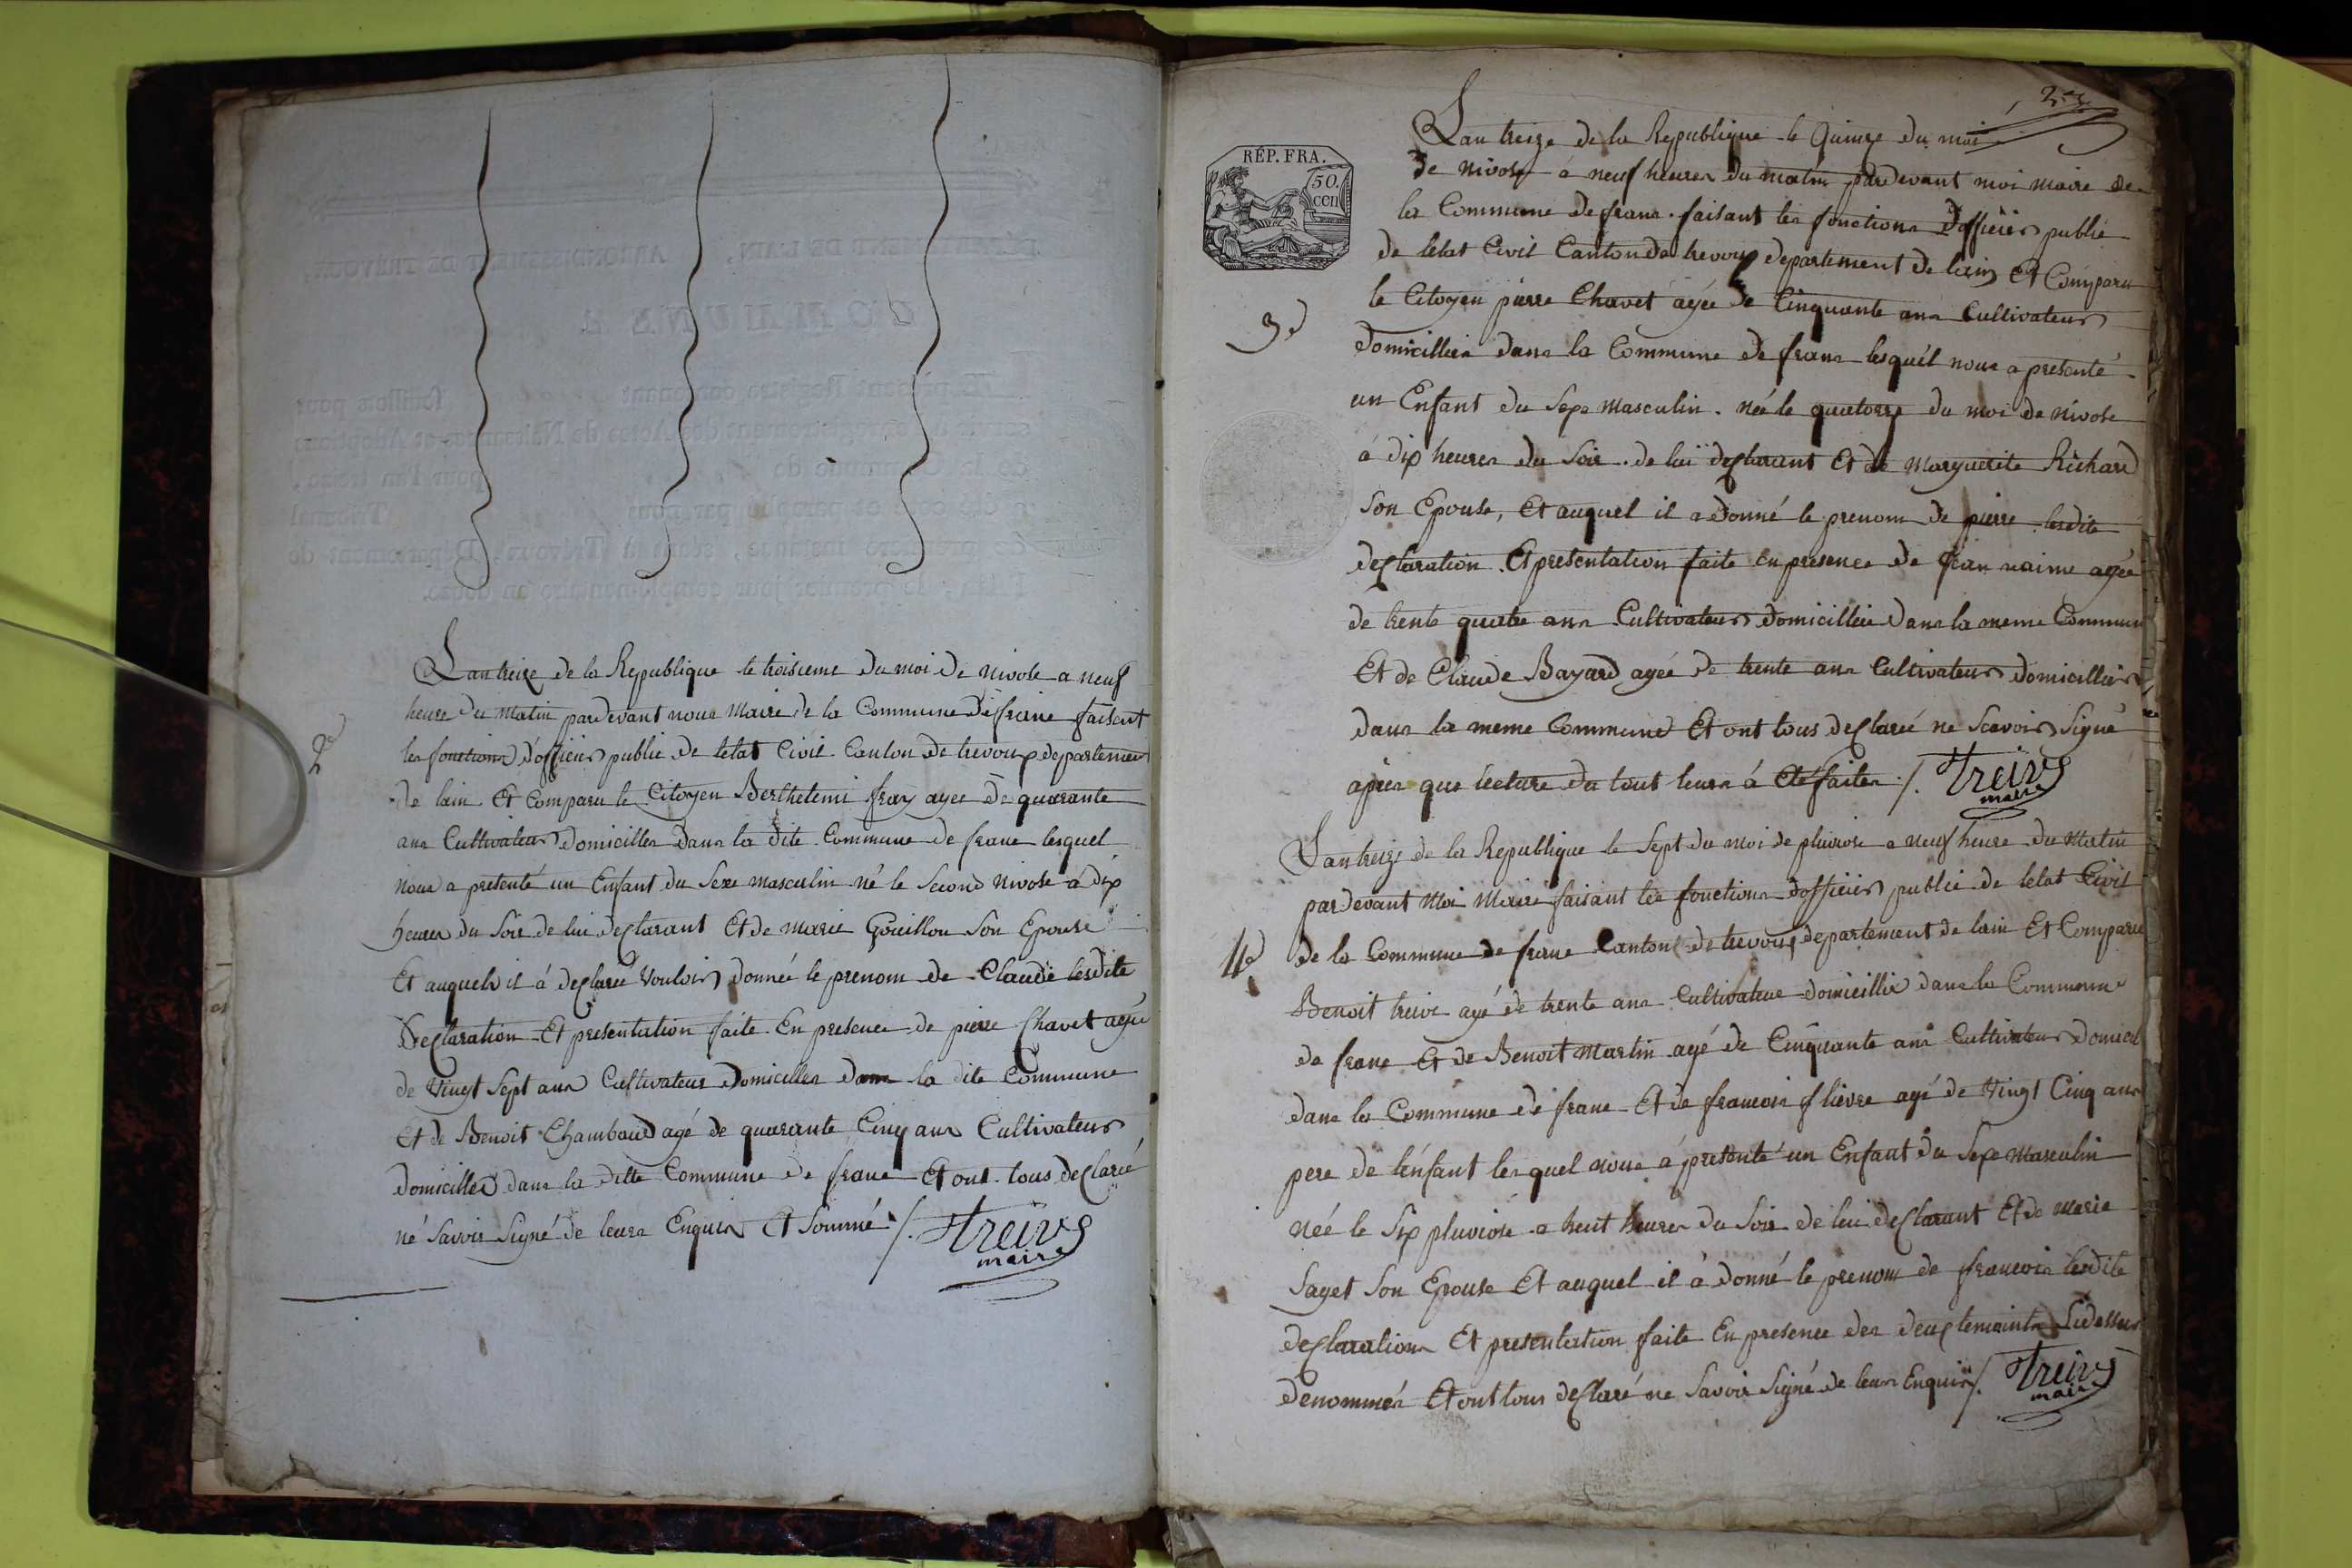 2e
Lan treize de la Republique le troisieme du moi de nivose a neuf
heure du matin pardevant nous maire de la Commune de frane faisent
les fonctions d'officier public de letat Civil Canton de trevoux departement
de lain Et Comparu le Citoyen Berthelemi fray agee de quarante
ans Cultivateur Domicillee dans la dite Commune de frane lesquel
nous a presenté un Enfant du Sexe masculin né le Second nivose a dix
heures du Soir de lui declarant Et de marie Gouillou Son Epouse
Et auquel il á declaré Vouloir donnée le prenom de Claude lesdite
Declaration Et presentation faite En presence de pierre Chavet agée
de Vingt Sept ans Cultivateur Domicillee dans la dite Commune
Et de Benoit Chambaud agé de quarante Cinq ans Cultivateur
domicillee dans la ditte Commune de frane Et ont tous declaré
né Savoir Signé de leurs Enquis Et Sommé /. Treive
maire
RÉP. FRA.
50.
cen
3e
Lan treize de la Republique le Quinze du moi
de nivose á neuf heures du matin pardevant moi maire de
la Commune de frans faisant les fonctions d'officier public
de letat Civil Canton de trevoux departement de lain Et Comparu
le Citoyen pierre Chavet agée de Cinquante ans Cultivateur
domicillier dans la Commune de frans lesquél nous a presenté
un Enfant du Sexe masculin née le quatorze du moi de nivose
á dix heures du Soir de lui declarant Et de Marguerite Richard
Son Epouse, Et auquel il a donné le prenom de pierre lesdite
declaration Et presentation faite En presence de jean naime agée
de trente quatre ans Cultivateur domicillier dans la meme Commun
Et de Claude Bayard agée de trente ans Cultivateur domicillier
dans la meme Commune Et ont tous declaré ne Scavoir Signé
apres que lecture du tout leurs á Eté faites /. Treive
maire
4e
Lan treize de la Republique le Sept du moi de pluviose a neuf heure du Matin
pardevant Moi Maire faisant les fonctions d'officier public de letat Civil
de la Commune de frane Canton de trevoux departement de lain Et Comparu
Benoit treive agé de trente ans Cultivateur domicillie dans la Commune
de frane Et de Benoit Martin agé de Cinquante ans Cultivateur domicil
dans la Commune de frane Et de francois flievre agé de Vingt Cinq ans
pere de l'enfant lesquel nous á presenté un Enfant du Sexe Masculin
née le Six pluviose a huit heures du Soir de lui declarant Et de Marie
Sayet Son Epouse Et auquel il á donné le prenom de francois lesdite
declarations Et presentation faite En presence des deux temoints Sidessus
denommés Et ont tous declaré ne Savoir Signé de leurs Enquis /. Treive
maire